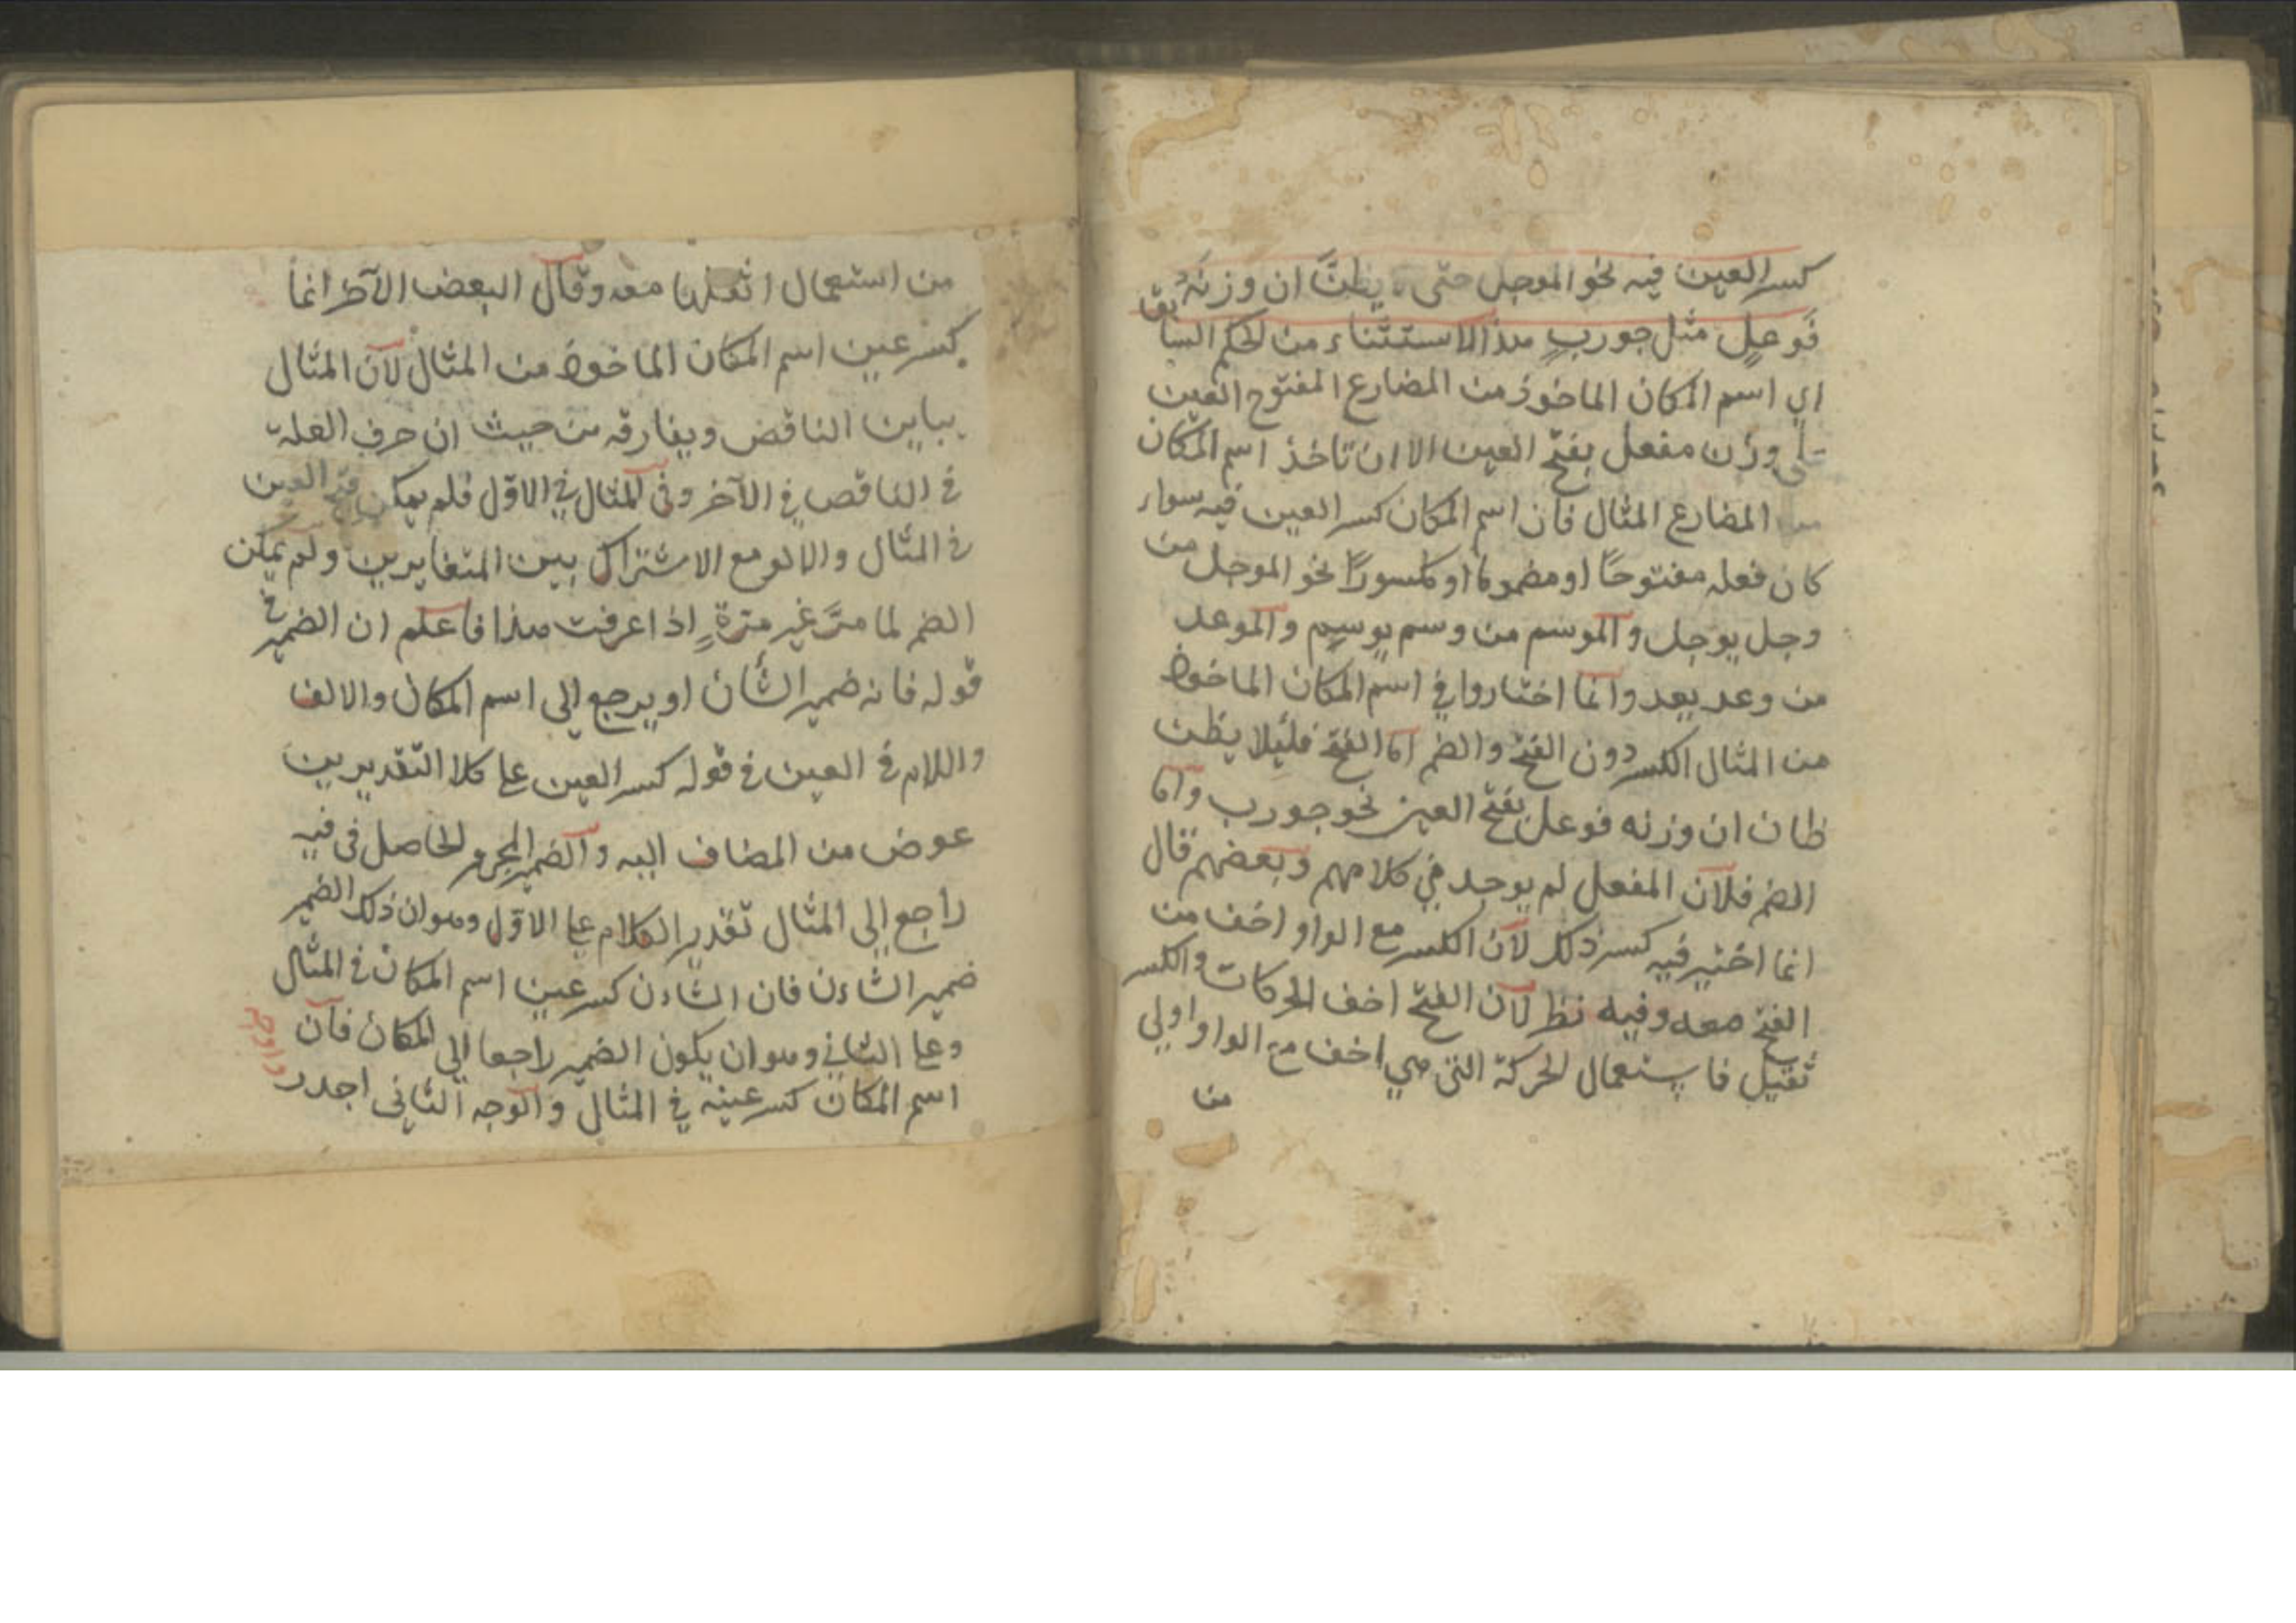 كسر العين فيه نحو الموجل حتى لا يظنّ ان وزنه
فَوعلٍ مثل جوربٍ هذا الاستثناء من الحكم السابق
اي اسم المكان الماخوذ من المضارع المفتوح العين
على وزن مفعل بفتح العين الا ان تاخذ اسم المكان
من المضارع المثال فان اسم المكان كسر العين فيه سواء
كان فعله مفتوحًا او مضمومًا او مكسورًا نحو الموجل من
وجل يوجل والموسم من وسم يوسم والموعد
من وعد يعد وانما اختاروا في اسم المكان الماخوذ
من المثال الكسر دون الفتح والضم اما الفتح فلئلا يظن
ظان ان وزنه فوعل بفتح العين نحو جورب واما
الضم فلان المفعل لم يوجد في كلامهم وبعضهم قال
انما اختير فيه كسر ذلك لان الكسر مع الواو اخف من
الفتح معه وفيه نظر لان الفتح اخف الحركات والكسر
ثقيل فاستعمال الحركة التي هي اخف مع الواو اولي
من
من استعمال اثقلها معه وقال البعض الآخر انما
كسر عين اسم المكان الماخوذ من المثال لان المثال
يباين الناقص ويفارقه من حيث ان حرف العلة
في الناقص في الآخر وفي المثال في الاوّل فلم يمكن فتح العين
في المثال والا لوقع الاشتراك بين المتغايرين ولم يمكن
الضم لما مرَّ غير مرّةٍ اذا عرفت هذا فاعلم ان الضمير في
قوله فانه ضمير الشأن او يرجع الى اسم المكان والالف
واللام في العين في قوله كسر العين على كلا التقديرين
عوض من المضاف اليه والضمير المجرور الحاصل في فيه
راجع الى المثال تقدير الكلام على الاوّل وهو ان ذلك الضمير
ضمير الشاءن فان الشاءن كسر عين اسم المكان في المثال
وعلى الثاني وهو ان يكون الضمير راجعا الى المكان فان
اسم المكان كسر عينه في المثال والوجه الثاني اجدر